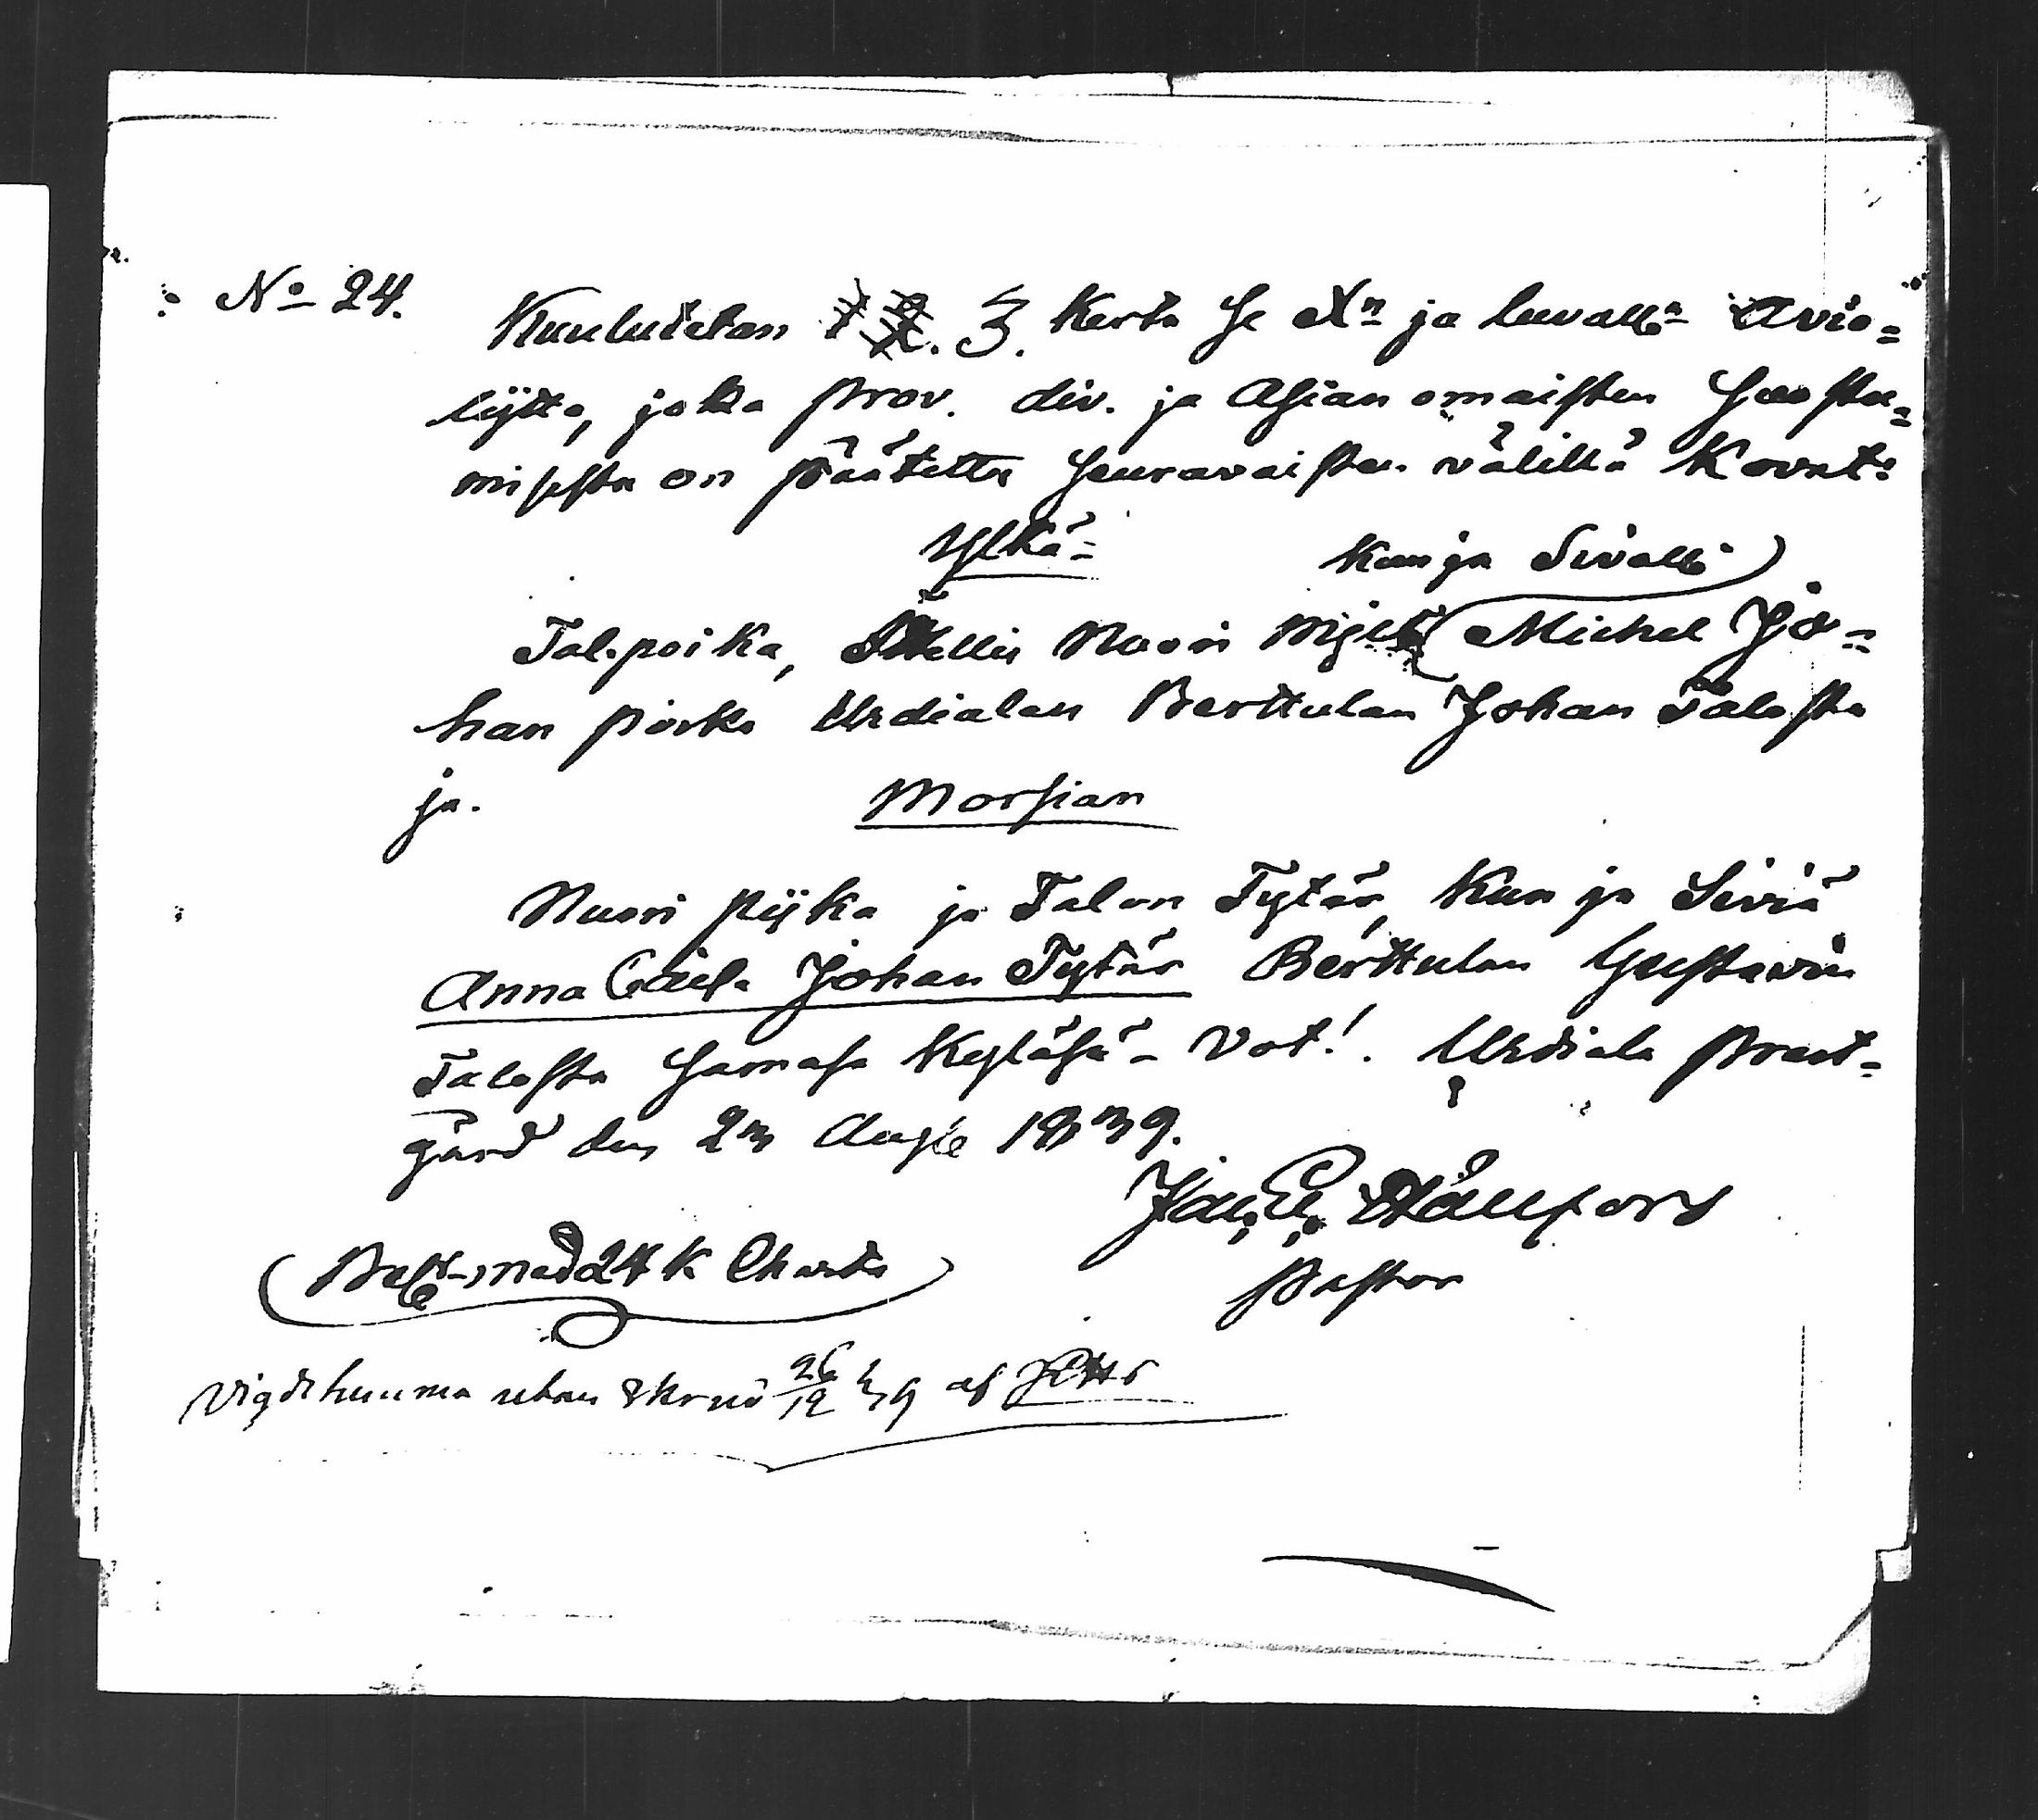 No 24.
Kuulutetan 1 2. 3. Kerta Se Xn ja luvalln Avio=
lijtto, joka prov. div. ja Asianomaisten Suostu=
misesta on päätetty Seuravaisten välillä Kovat:
Ylkä=
Kun ja Siväll
Tal.poika, Nuori Mies Michel Jo=
han poika Urdialan Berttulan Johan Talosta
ja.
Morsian
Nuori pijka ja Talon Tytär, Kun ja Siviä
Anna Caisa Johan Tytär Berttulan Gustavin
Talosta Samasa Kyläsä- Vot!. Urdiala Prest=
gård den 23 Aug 1839.
Jac. E. Hällfors
Pastor
med 24 k Charta
Vigde hemma utan 26/12 39 af